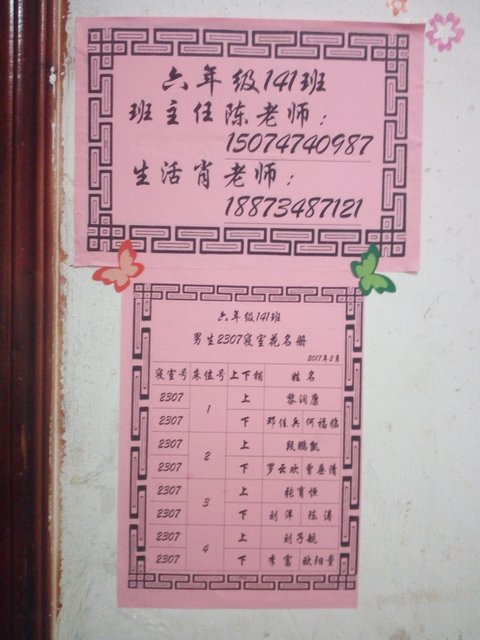 六年级141班
班主任陈老师：
15074740987
生活肖老师：
18873487121
六年级141班
男生2307寝室花名册
2017年2月
寝室号 床位号 上下铺 姓名
2307 1 上 黎润康
2307 下 邓佳兵 何福临
2307 2 上 段鹏凯
2307 下 罗云欢 曾垂清
2307 3 上 张育恒
2307 下 刘洋 陈涛
2307 4 上 刘子航
2307 下 李富 欧阳黄